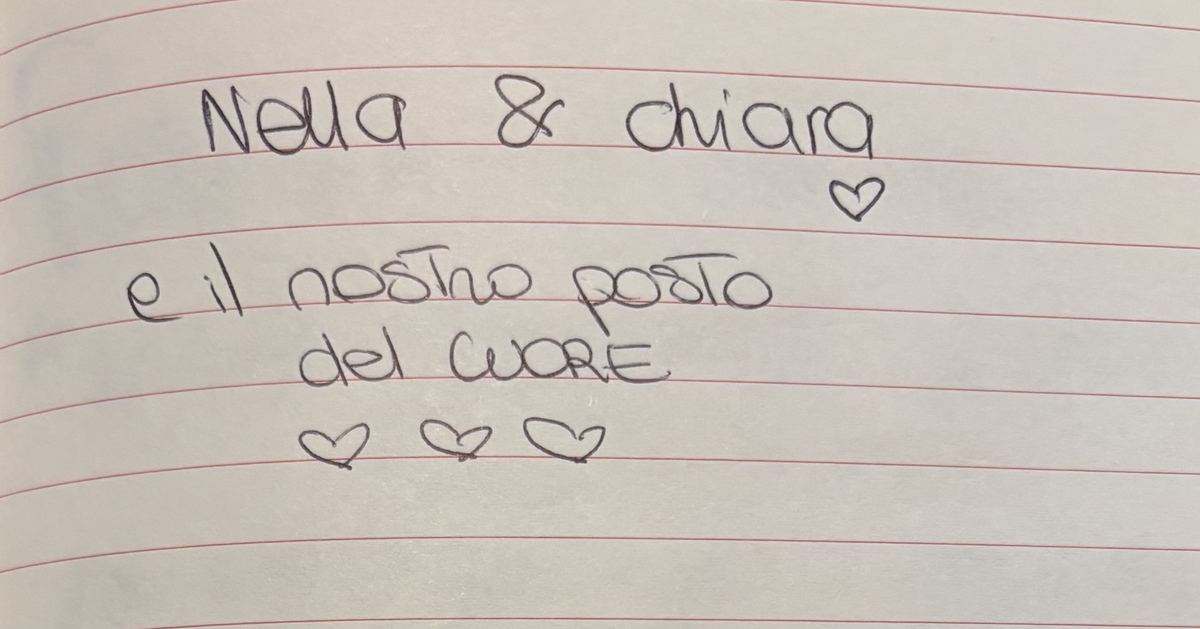 Nella & chiara
♡
e il nostro posto
del CUORE
♡ ♡ ♡